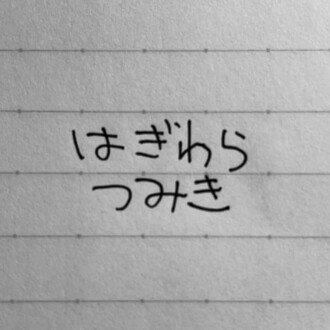 はぎわら
つみき